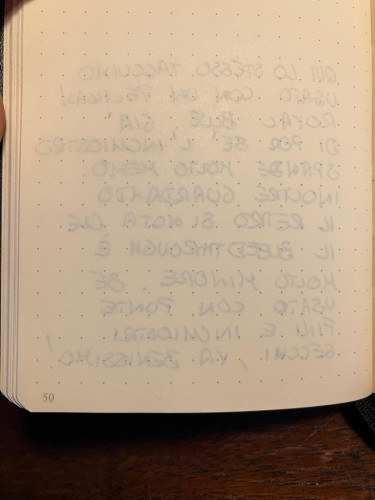 QUI LO STESSO TACCUINO
USATO CON UN PELIKAN
ROYAL BLUE GIÀ
DI PER SÈ L'INCHIOSTRO
SPANDE MOLTO MENO
INOLTRE GUARDANDO
IL RETRO SI NOTA CHE
IL BLEEDTHROUGH È
MOLTO MINORE. SE
USATO CON PUNTE
FINI E INCHIOSTRI
SECCHI, VA BENISSIMO
50